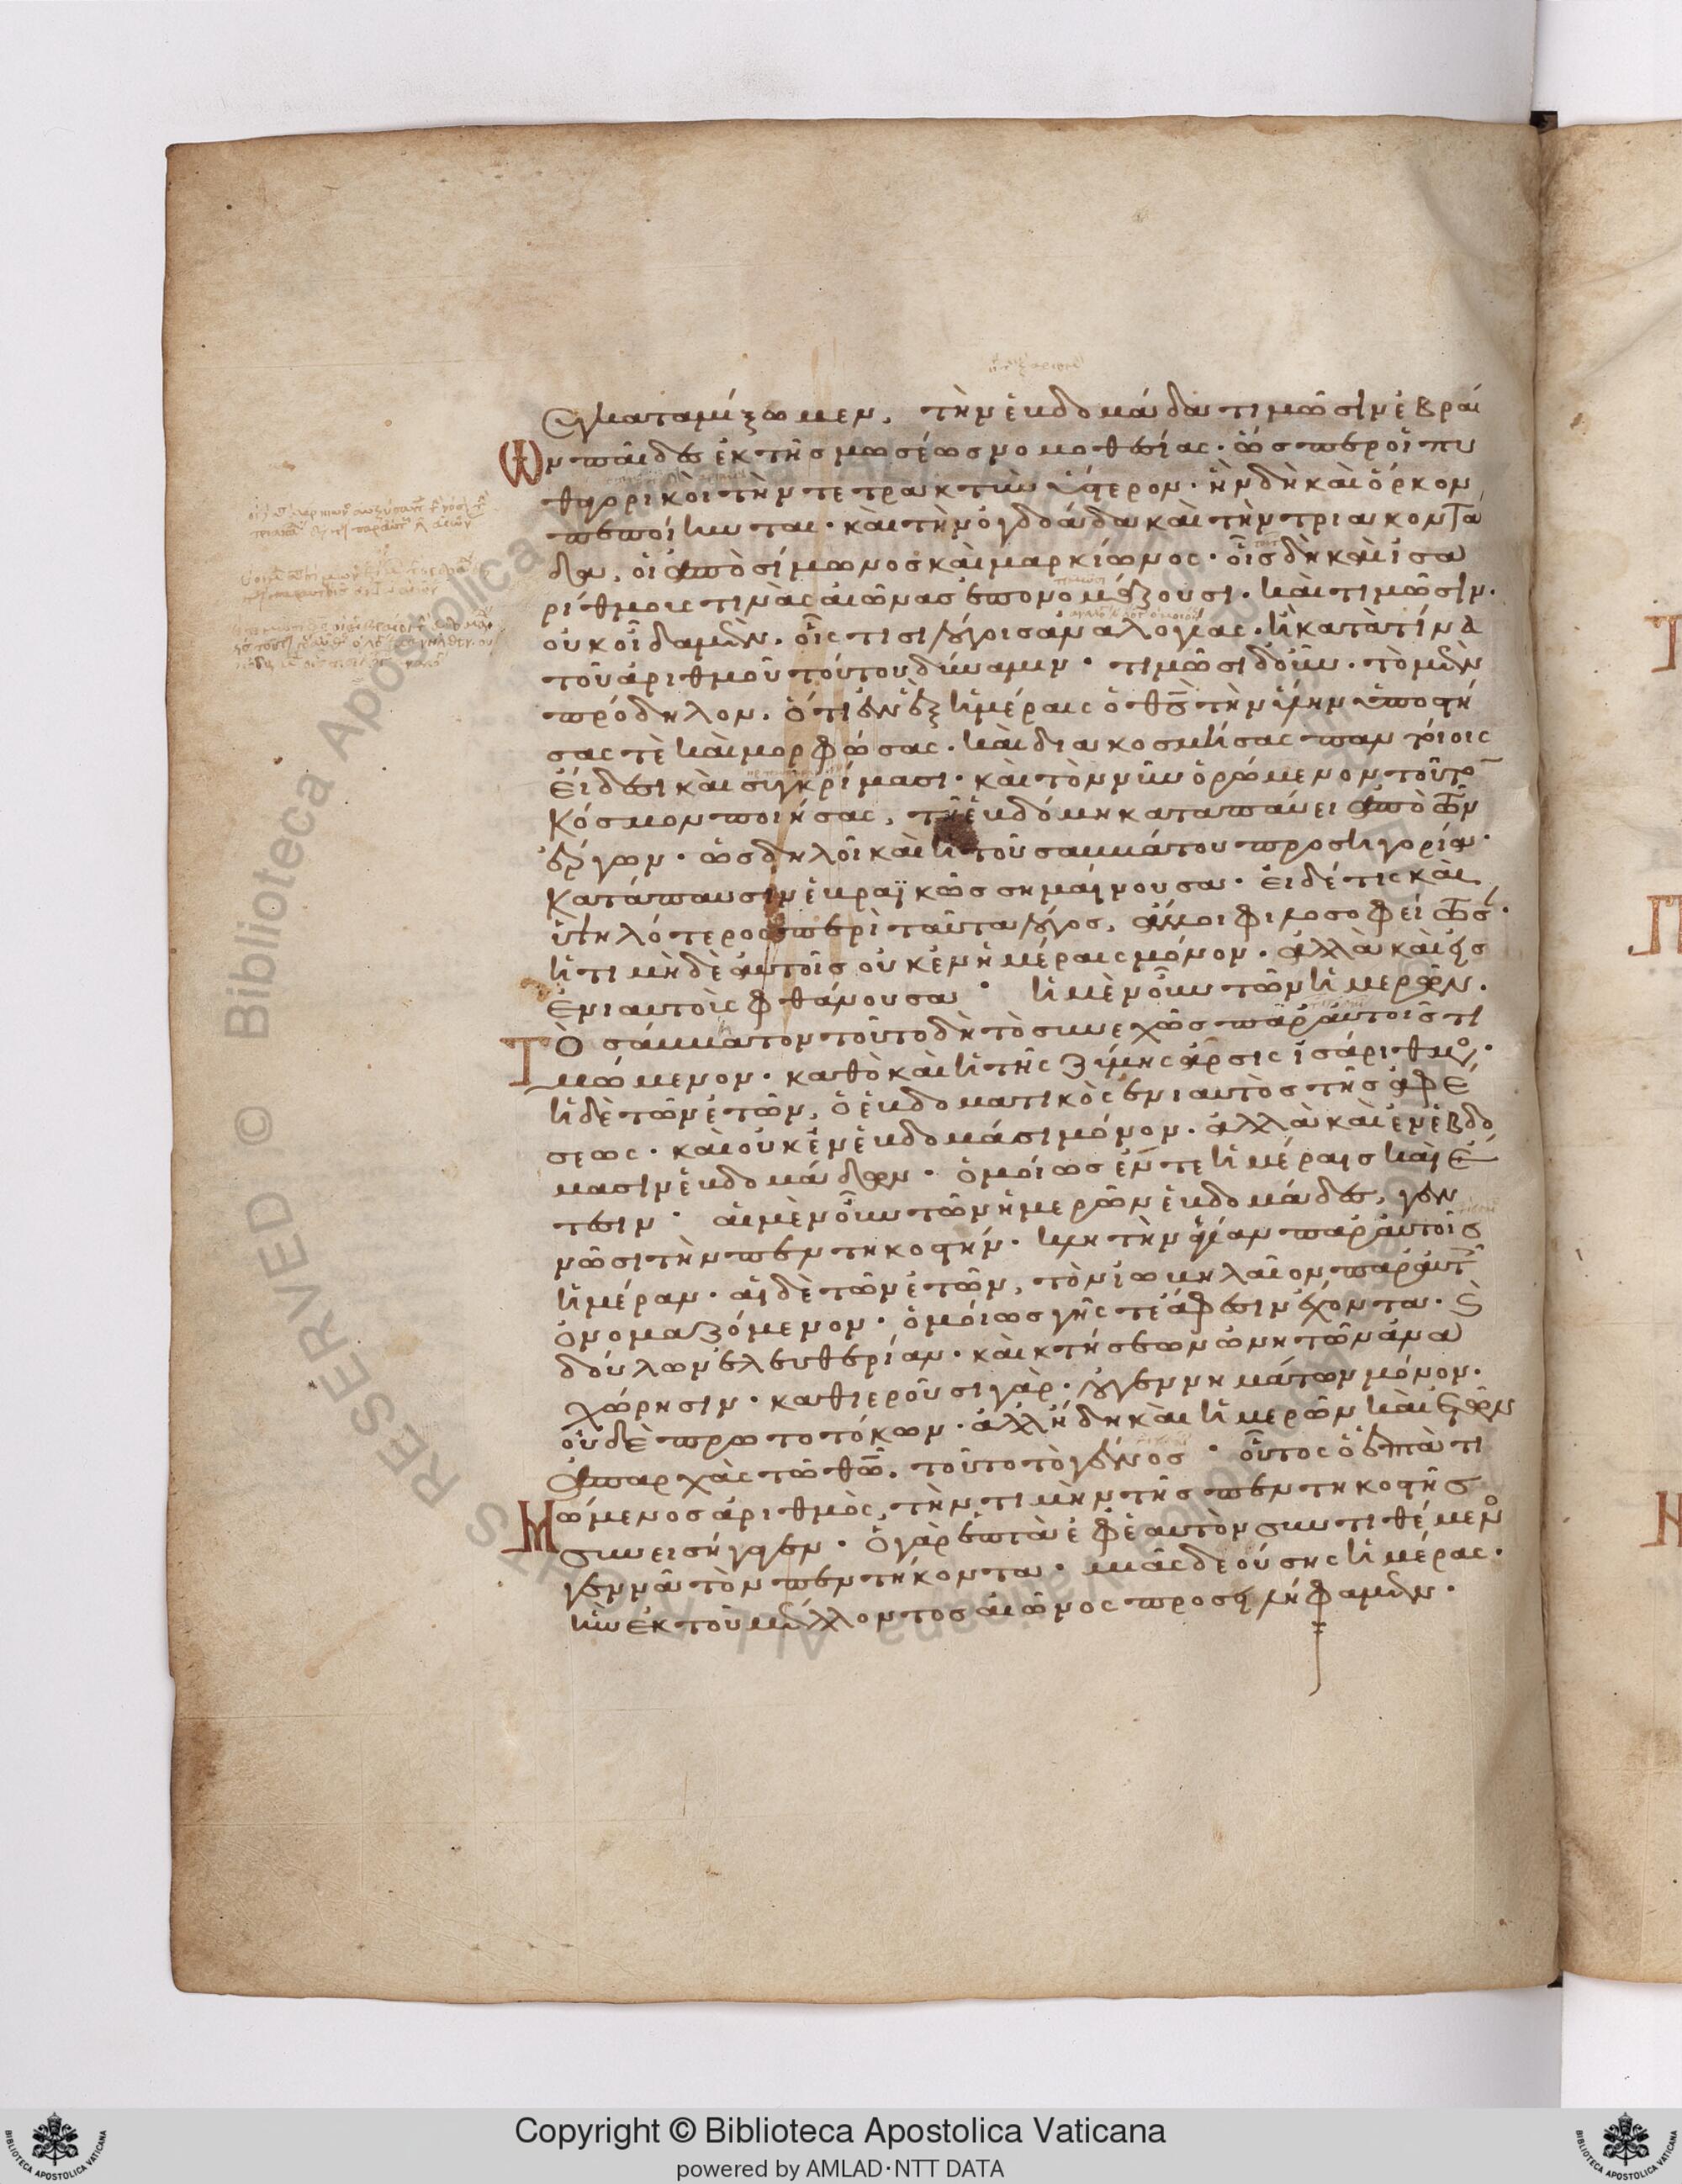 ἐγκαταμίξωμεν. τὴν ἑβδομάδα τιμῶσιν ἑβραί
ων παῖδες ἐκ τῆς μωσέως νομοθεσίας· ὥσπερ οἱ πυ
θαγορικοὶ τὴν τετρακτὺν ὕστερον· ἣν δὴ καὶ ὅρκον
πεποίηνται· καὶ τὴν ὀγδοάδα καὶ τὴν τριακοντα
δα, οἱ ἀπὸ σίμωνος καὶ μαρκίωνος· οἷς δὴ καὶ ἰσα
ρίθμους τινὰς αἰῶνας ἐπονομάζουσι· καὶ τιμῶσιν·
οὐκ οἶδα μὲν· οἷς τισι λόγοις ἀναλογίας· ἢ κατὰ τίνα
τοῦ ἀριθμοῦ τούτου δύναμιν· τιμῶσι δ' οὖν. τὸ μὲν
πρόδηλον. ὅτι ἐν ἓξ ἡμέραις ὁ θς τὴν ὕλην ὑποστή
σας τὲ καὶ μορφώσας· καὶ διακοσμήσας παντοίοις
εἴδεσι καὶ συγκρίμασι· καὶ τὸν νῦν ὁρώμενον τοῦτο
κόσμον ποιήσας, τῇ ἑβδόμη καταπαύει ἀπὸ τῶν
ἔργων· ὡς δηλοῖ καὶ ἡ τοῦ σαββάτου προσηγορία·
κατάπαυσιν ἑβραϊκῶς σημαίνουσα· εἰ δέ τις καὶ
ὑψηλότερος περὶ ταῦτα λόγος, ἄλλοι φιλοσοφείτωσ·
ἡ τιμὴ δὲ αὐτοῖς οὐκ ἐν ἡμέραις μόνον· ἀλλὰ καὶ εἰς
ἐνιαυτοὺς φθάνουσα· ἡ μὲν οὖν τῶν ἡμερῶν.
Τὸ σάββατον τοῦτο δὴ τὸ συνεχῶς παρ' αὐτοῖς τι
μώμενον· καθὸ καὶ ἡ τῆς ζύμης ἄρσις ἰσάριθμος·
ἡ δὲ τῶν ἐτῶν, ὁ ἑβδοματικὸς ἐνιαυτὸς τῆς ἀφέ
σεως· καὶ οὐκ ἐν ἑβδομάσι μόνον· ἀλλὰ καὶ ἐν ἑβδο
μασιν ἑβδομάδων· ὁμοίως ἔν τε ἡμέραις καὶ ἔ
τεσιν· αἱ μὲν οὖν τῶν ἡμερῶν ἑβδομάδες, γεν
νῶσι τὴν πεντηκοστήν· κλητὴν ἁγίαν παρ' αὐτοῖς
ἡμέραν· αἱ δὲ τῶν ἐτῶν, τὸν ἰωβηλαῖον παρ' αὐτοῖς
ὀνομαζόμενον· ὁμοίως γῆς τε ἄφεσιν ἔχοντα· καὶ
δούλων ἐλευθερίαν· καὶ κτήσεων ὠνητῶν ἀνα
χώρησιν· καθιεροῦσι γὰρ· οὐ γεννημάτων μόνον·
οὐδὲ πρωτοτόκων· ἀλλ' ἤδη καὶ ἡμερῶν καὶ ἐτῶν
ἀπαρχὰς τῷ θῷ. τοῦτο τὸ γένος· οὗτος ὁ ἑπτὰ τι
Μώμενος ἀριθμὸς, τὴν τιμὴν τῆς πεντηκοστῆς
συνεισήγαγεν· ὁ γὰρ ἑπτὰ ἐφ' ἑαυτὸν συντιθέμενος
γεννᾶ τὸν πεντήκοντα· μιᾶς δεούσης ἡμέρας·
ἣν ἐκ τοῦ μέλλοντος αἰῶνος προσειλήφαμεν·
Copyright © Biblioteca Apostolica Vaticana
powered by AMLAD·NTT DATA